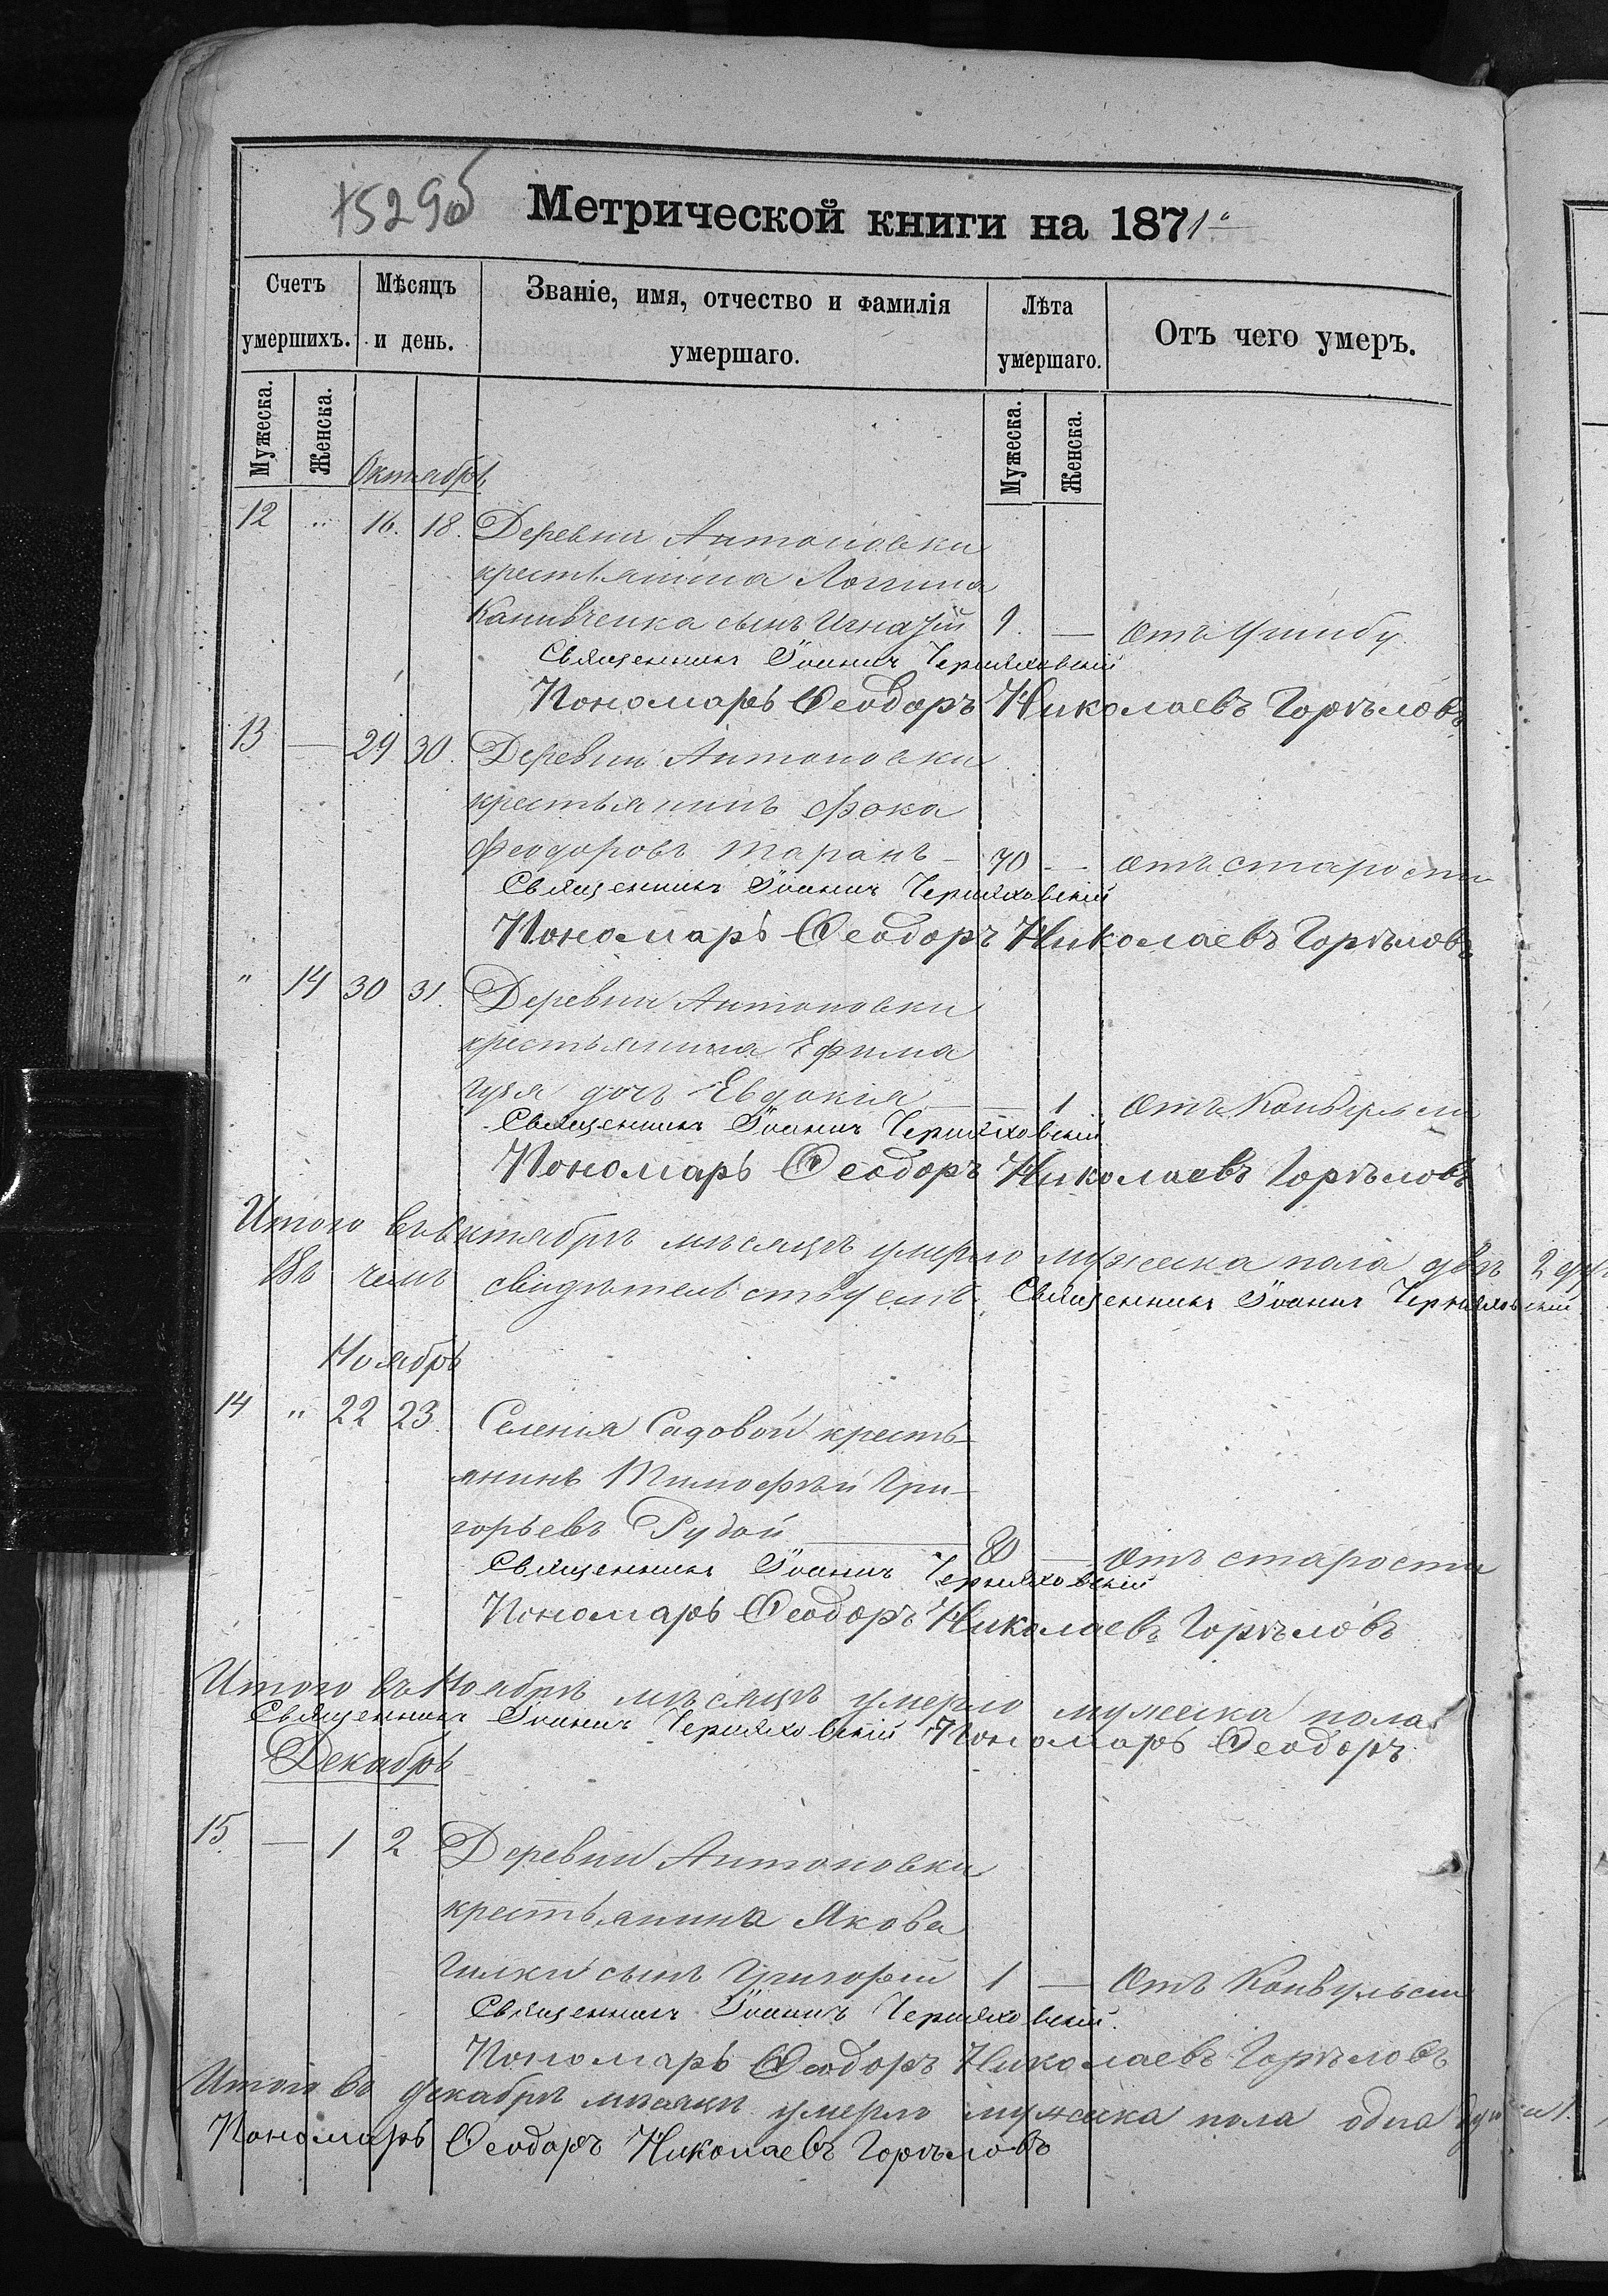 529об
Метрической книги на 1871
Счетъ умершихъ.
Мѣсяцъ и день.
Званіе, имя, отчество и фамилія умершаго.
Лѣта умершаго.
Отъ чего умеръ.
Мужеска.
Женска.
Мужеска.
Женска.
Октябрь
12 " 16. 18. Деревни Антоновки
крестьянина Логгина
Канивченка сынъ Игнатій 9. —
Священникъ Іоаннъ Черняховскій
Пономарь Ѳеодоръ Николаевъ Горѣловъ
13 — 29 30. Деревни Антоновки
крестьянинъ Фока
Феодоровъ Таранъ — 70 — Отъ старости
Священникъ Іоаннъ Черняховскій
Пономарь Ѳеодоръ Николаевъ Горѣловъ
" 14 30 31. Деревни Антоновки
крестьянина Ефима
дочь Евдокія — 1 Отъ Конвульсіи
Священникъ Іоаннъ Черняховскій
Пономарь Ѳеодоръ Николаевъ Горѣловъ
Итого въ октябрѣ мѣсяцѣ умерло мужеска пола двѣ 2
Въ чемъ свидѣтельствуемъ. Священникъ Іоаннъ Черняховскій
Ноябрь
14 " 22 23. Селенія Садовой кресть-
янинъ Тимофѣй Гри-
горьевъ Рудой — 80 — Отъ старости
Священникъ Іоаннъ Черняховскій
Пономарь Ѳеодоръ Николаевъ Горѣловъ
Итого въ Ноябрѣ мѣсяцѣ умерло мужеска пола 1
Священникъ Іоаннъ Черняховскій Пономарь Ѳеодоръ
Декабрь
15. — 1 2 Деревни Антоновки
крестьянина Якова
сынъ Григорій 1 — Отъ Конвульсіи
Священникъ Іоаннъ Черняховскій.
Пономарь Ѳеодоръ Николаевъ Горѣловъ
Итого въ декабрѣ мѣсяцѣ умерло мужеска пола одна
Пономарь Ѳеодоръ Николаевъ Горѣловъ